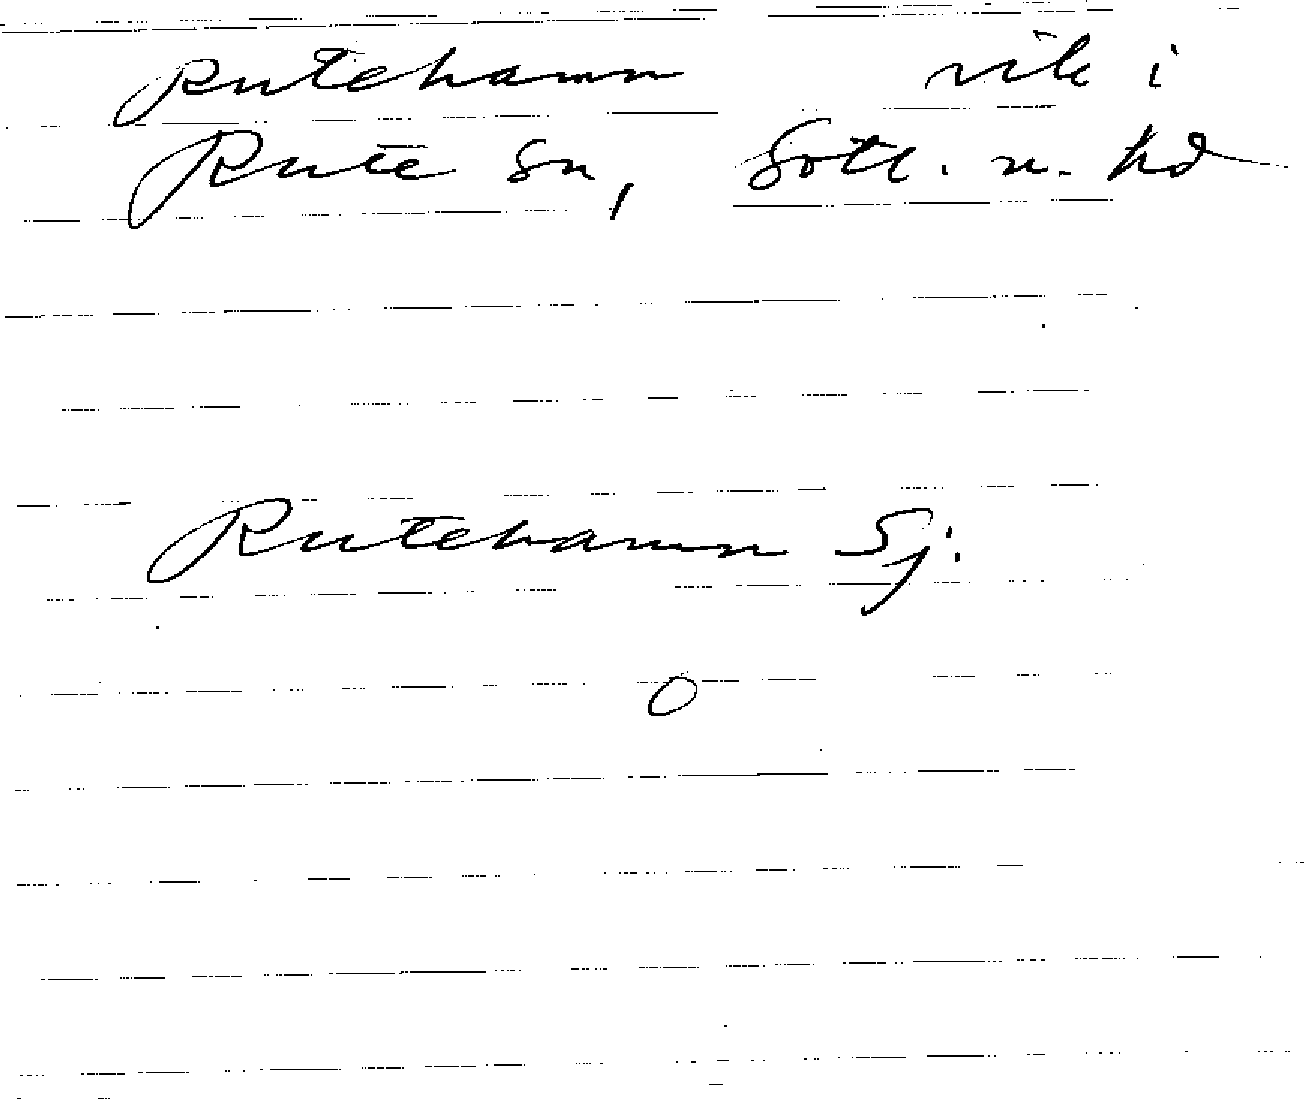 Rutehamn vik i
Rute sn, Gotl. n. hd
Rutehamn Sj.
0